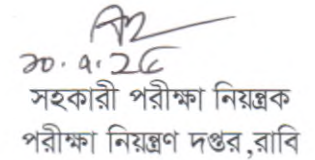 সহকারী পরীক্ষা নিয়ন্ত্রক
পরীক্ষা নিয়ন্ত্রণ দপ্তর,রাবি